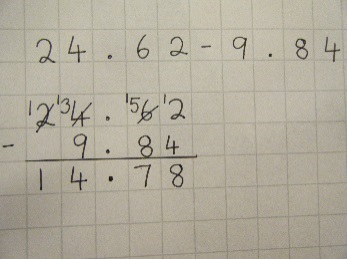 24.62-9.84
¹2 ¹³4 . ¹⁵6 ¹2
- 9.84
14.78